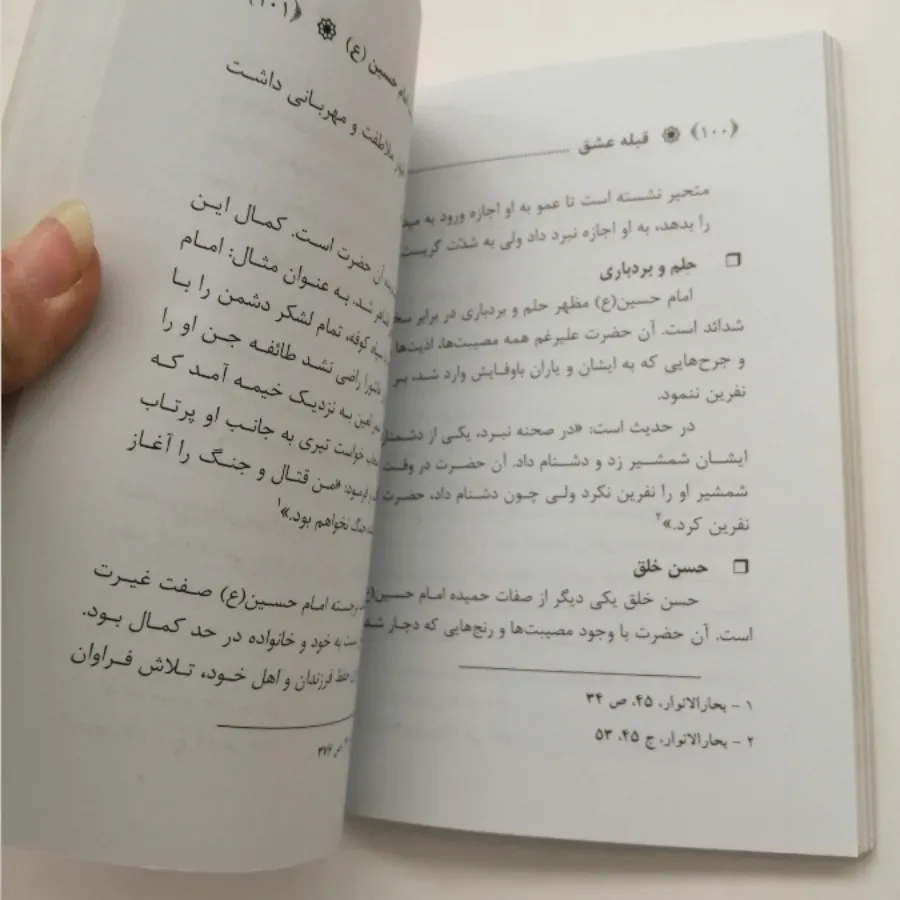 ﴿۱۰۰﴾ قبله عشق
متحیر نشسته است تا عمو به او اجازه ورود به
را بدهد، به او اجازه نبرد داد ولی به شدّت گریست
حلم و بردباری
امام حسین(ع) مظهر حلم و بردباری در برابر
شدائد است. آن حضرت علیرغم همه مصیبت‌ها، اذیت‌ها
و جرح‌هایی که به ایشان و یاران باوفایش وارد شد، بر
نفرین ننمود.
در حدیث است: «در صحنه نبرد، یکی از
ایشان شمشیر زد و دشنام داد. آن حضرت در وقت
شمشیر او را نفرین نکرد ولی چون دشنام داد، حضرت
نفرین کرد.»۲
حسن خلق
حسن خلق یکی دیگر از صفات حمیده امام حسین(ع)
است. آن حضرت با وجود مصیبت‌ها و رنج‌هایی که دچار شد
۱ - بحارالانوار، ۴۵، ص ۳۴
۲ - بحارالانوار، ج ۴۵، ۵۳
امام حسین (ع) ﴿۱۰۱﴾
ملاطفت و مهربانی داشت
آن حضرت است. کمال این
شد. به عنوان مثال: امام
سپاه کوفه، تمام لشکر دشمن را با
راضی نشد طائفه جن او را
به نزدیک خیمه آمد که
خواست تیری به جانب او پرتاب
فرمود: «من قتال و جنگ را آغاز
جنگ نخواهم بود.»۱
امام حسین(ع) صفت غیرت
به خود و خانواده در حد کمال بود.
حفظ فرزندان و اهل خود، تلاش فراوان
ص ۳۷۶